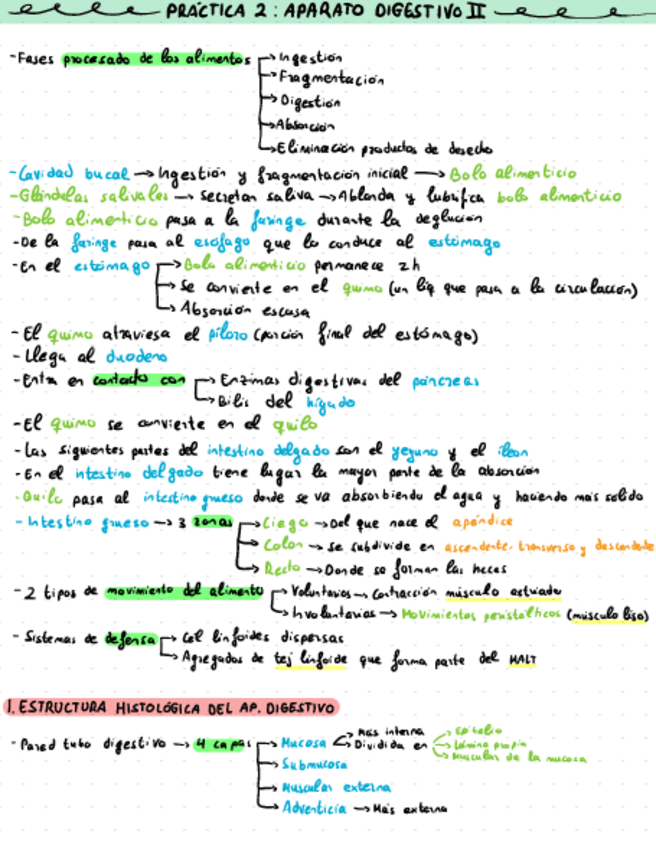 PRÁCTICA 2: APARATO DIGESTIVO II
-Fases procesado de los alimentos → Ingestión
→ Fragmentación
→ Digestión
→ Absorción
→ Eliminación productos de desecho
-Cavidad bucal → Ingestión y fragmentación inicial → Bolo alimenticio
-Glándulas salivales → Secretan saliva → Ablanda y lubrifica bolo alimenticio
-Bolo alimenticio pasa a la faringe durante la deglución
-De la faringe pasa al esófago que lo conduce al estómago
-En el estómago → Bolo alimenticio permanece 2h
→ Se convierte en el quimo (un liq que pasa a la circulación)
→ Absorción escasa
-El quimo atraviesa el píloro (porción final del estómago)
-Llega al duodeno
-Entra en contacto con → Enzimas digestivas del páncreas
→ Bilis del hígado
-El quimo se convierte en el quilo
-Las siguientes partes del intestino delgado son el yeyuno y el íleon
-En el intestino delgado tiene lugar la mayor parte de la absorción
-Quilo pasa al intestino grueso donde se va absorbiendo el agua y haciendo más solido
-Intestino grueso → 3 zonas → Ciego → Del que nace el apéndice
→ Colon → se subdivide en ascendente, transverso y descendente
→ Recto → Donde se forman las heces
-2 tipos de movimiento del alimento → Voluntarios → Contracción músculo estriado
→ Involuntarios → Movimientos peristálticos (músculo liso)
-Sistemas de defensa → Cel linfoides dispersas
→ Agregados de tej linfoide que forma parte del MALT
1. ESTRUCTURA HISTOLÓGICA DEL AP. DIGESTIVO
-Pared tubo digestivo → 4 capas → Mucosa → Más interna
→ Dividida en → Epitelio
→ Lámina propia
→ Muscular de la mucosa
→ Submucosa
→ Muscular externa
→ Adventicia → Más externa